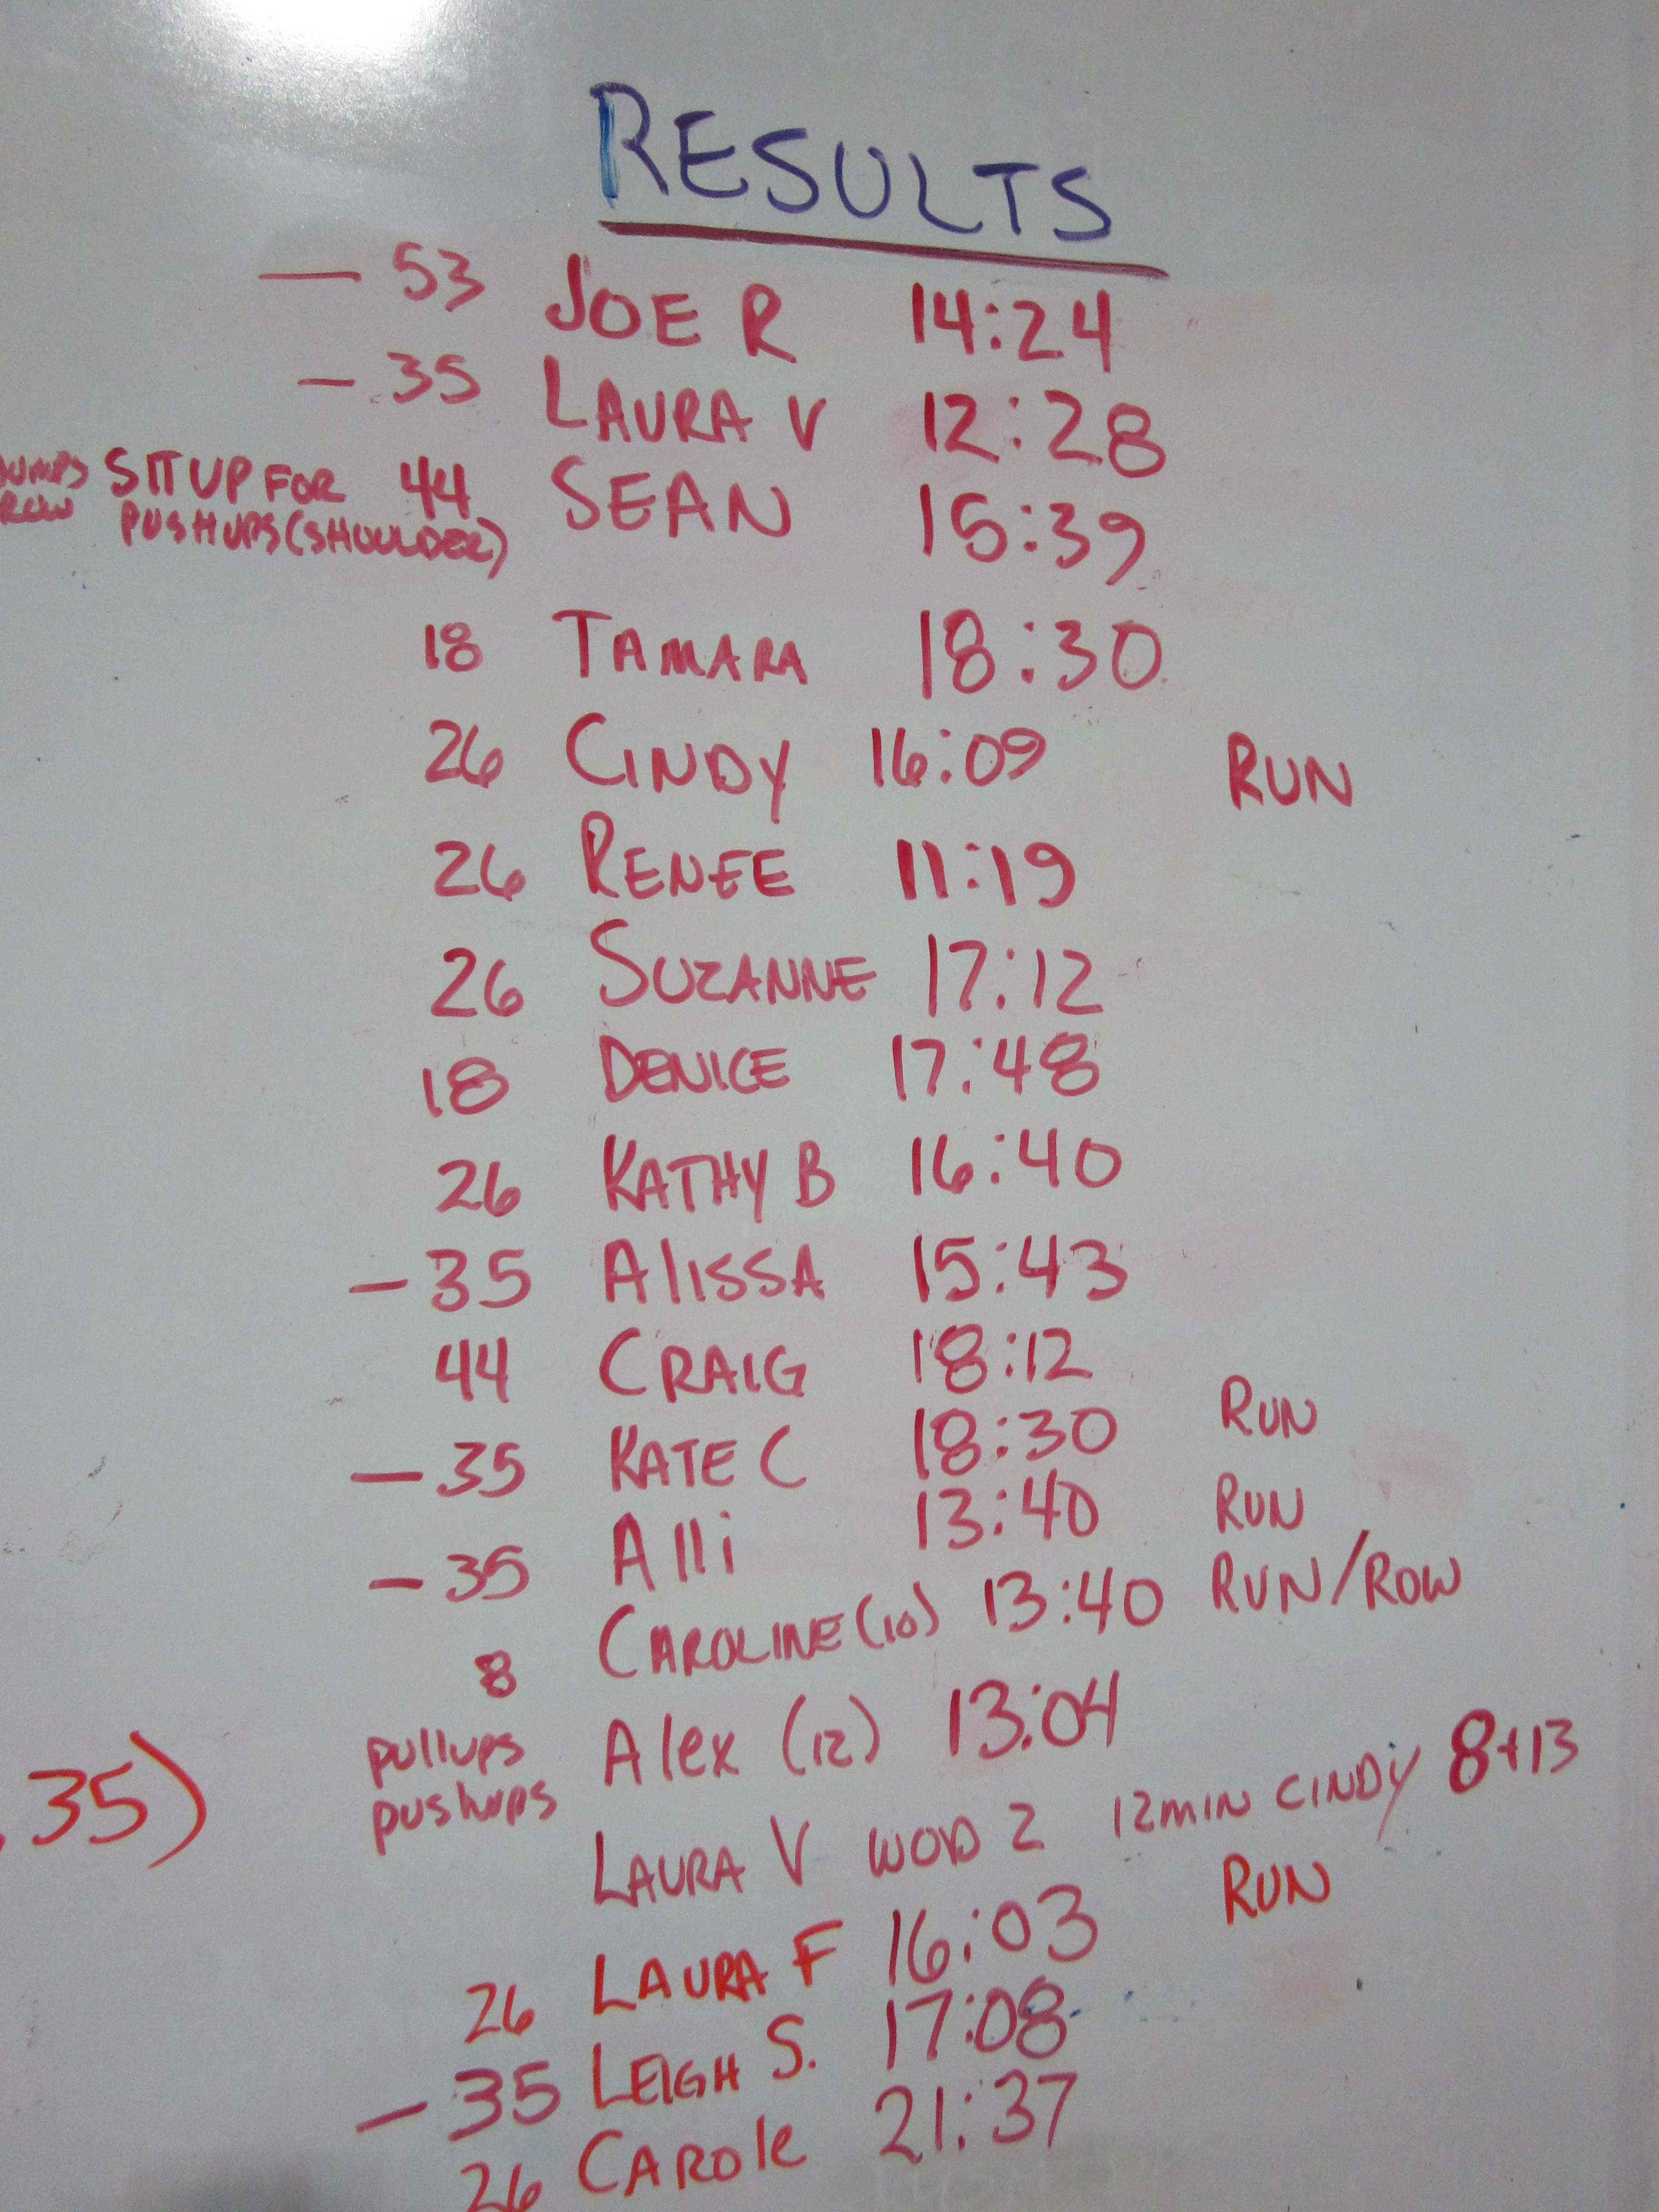 RESULTS
— 53 JOE R 14:24
— 35 LAURA V 12:28
JUMPS SITUP FOR 44 SEAN 15:39
ROW PUSHUPS (SHOULDER)
18 TAMARA 18:30
26 CINDY 16:09 RUN
26 RENEE 11:19
26 SUZANNE 17:12
18 DENICE 17:48
26 KATHY B 16:40
— 35 AlISSA 15:43
44 CRAIG 18:12
— 35 KATE C 18:30 RUN
— 35 Alli 13:40 RUN
8 CAROLINE (10) 13:40 RUN/ROW
pullups Alex (12) 13:04
pushups
35)
LAURA V WOD 2 12MIN CINDY 8+13
26 LAURA F 16:03 RUN
— 35 LEIGH S. 17:08
26 CAROlE 21:37